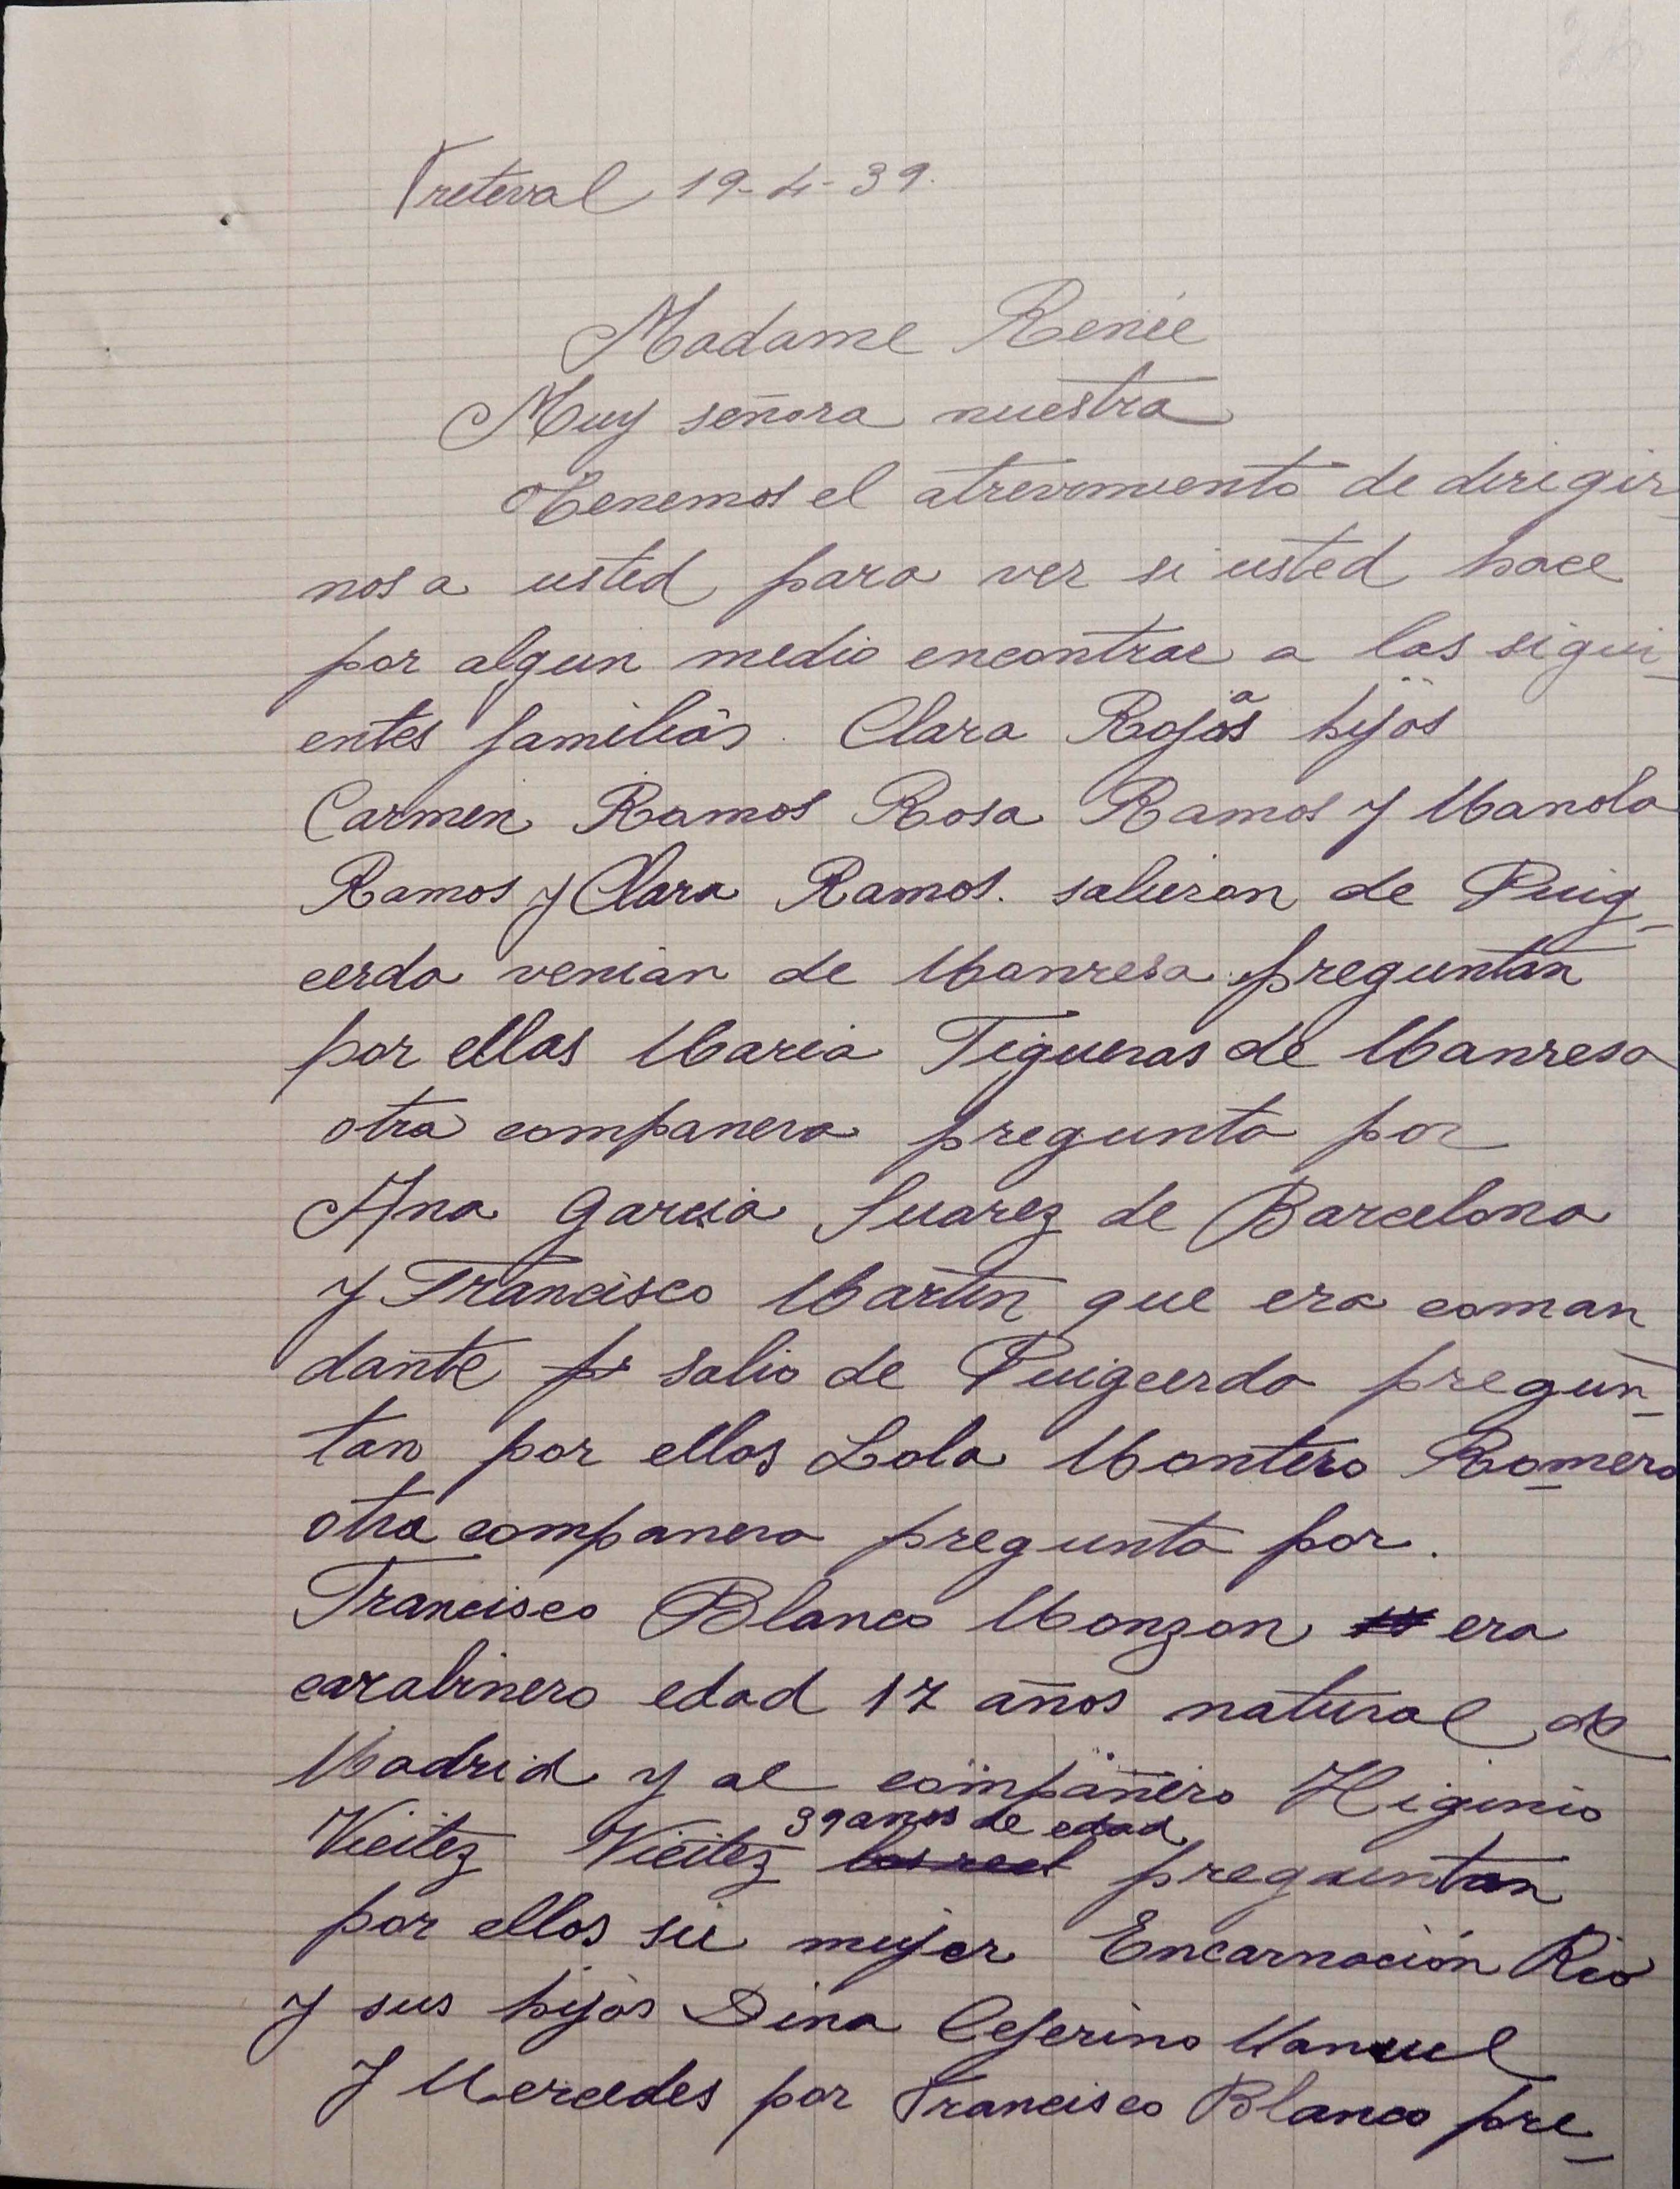 Freteval 19-4-39.
Madame Renée
Muy señora nuestra
Tenemos el atrevimiento de dirigir
nos a usted para ver si usted hace
por algun medio encontrar a las sigui-
entes familias. Clara Rojas hijos
Carmen Ramos Rosa Ramos y Manola
Ramos y Clara Ramos. salieron de Puig-
cerda venian de Manresa preguntan
por ellas Maria Figueras de Manresa
otra companera pregunta por
Ana Garcia Suarez de Barcelona
y Francisco Martin que era coman
dante salio de Puigcerda pregun-
tan por ellos Lola Montero Romero
otra companera pregunta por.
Francisco Blanco Monzon era
carabinero edad 17 años natural de
Madrid y al compañero Higinio
39 anos de edad
Vieitez Vieitez preguntan
por ellos su mujer Encarnación Rio
y sus hijos Dina Ceferino Manuel
y Mercedes por Francisco Blanco pre-